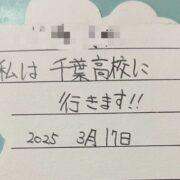 私は 千葉高校に
行きます!!
2025 3月17日